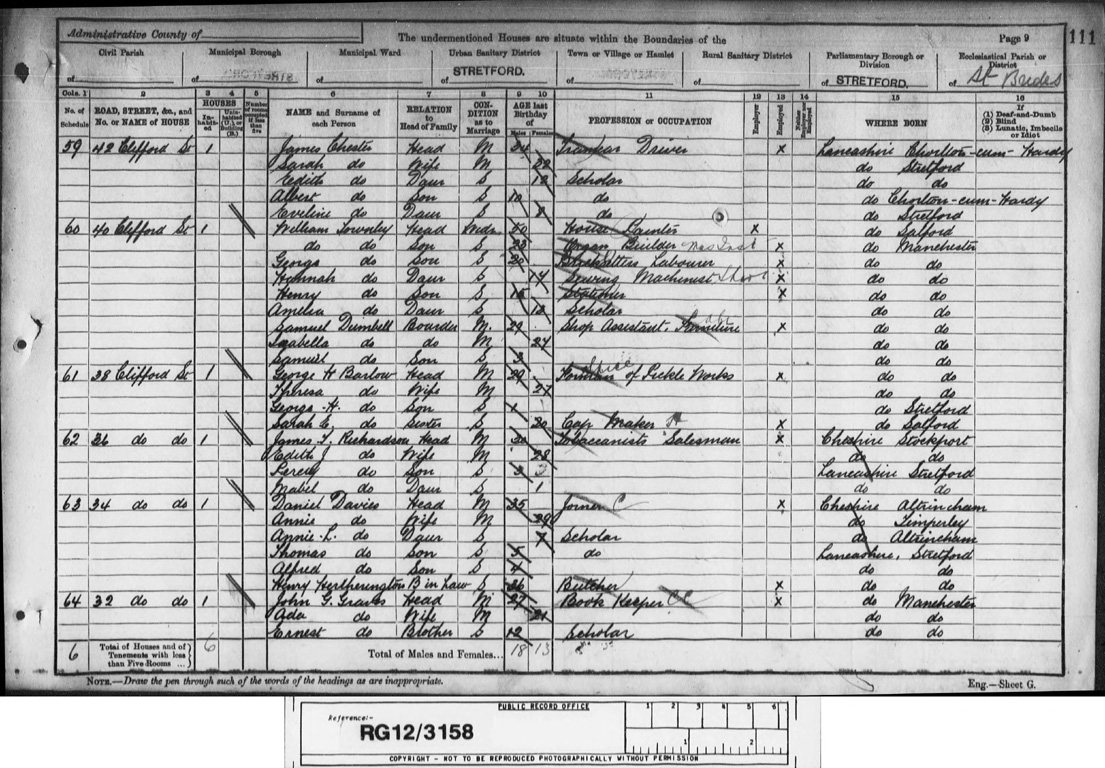 Administrative County of
The undermentioned Houses are situate within the Boundaries of the
Page 9
111
Civil Parish
Municipal Borough
Municipal Ward
Urban Sanitary District
Town or Village or Hamlet
Rural Sanitary District
Parliamentary Borough or Division
Ecclesiastical Parish or District
of
of
of
of STRETFORD.
of
of
of STRETFORD.
of St Brides
Cols. 1 2 3 4 5 6 7 8 9 10 11 12 13 14 15 16
No. of Schedule
ROAD, STREET, &c., and No. or NAME of HOUSE
HOUSES
Inhabited
Uninhabited (U.), or Building (B.)
Number of rooms occupied if less than five
NAME and Surname of each Person
RELATION to Head of Family
CONDITION as to Marriage
AGE last Birthday of
Males Females
PROFESSION or OCCUPATION
Employer
Employed
Neither Employer nor Employed
WHERE BORN
If
(1) Deaf-and-Dumb
(2) Blind
(3) Lunatic, Imbecile or Idiot
59 42 Clifford St 1 James Chester Head M 34 Driver x Lancashire Chorlton-cum-Hardy
Sarah do Wife M 32 do Stretford
Edith do Daur S 12 Scholar do do
Albert do Son S 10 do do Chorlton-cum-Hardy
Eveline do Daur S 8 do do Stretford
60 40 Clifford St 1 William Head Widr 50 House Painter x do Salford
do do Son S 23 Organ Builder x do Manchester
George do Son S 20 Labourer x do do
Hannah do Daur S 17 Sewing Machinist x do do
Henry do Son S 15 Stationer x do do
Amelia do Daur S 13 Scholar do do
Samuel Dumbell Boarder M 29 Shop Assistant, x do do
Isabella do do M 27 do do
Samuel do Son S 3 do do
61 38 Clifford St 1 George H Barlow Head M 29 Foreman of Pickle Works x do do
Theresa do Wife M 27 do do
George H. do Son S 1 do Stretford
Sarah E. do Sister S 20 Cap Maker x do Salford
62 36 do do 1 James T. Richardson Head M 30 Tobacconists Salesman x Cheshire Stockport
Edith J do Wife M 28 do do
Percy do Son S 3 Lancashire Stretford
Mabel do Daur S 1 do do
63 34 do do 1 Daniel Davies Head M 35 Joiner C x Cheshire Altrincham
Annie do Wife M 29 do Timperley
Annie L. do Daur S 7 Scholar do Altrincham
Thomas do Son S 5 do Lancashire, Stretford
Alfred do Son S 4 do do
Henry Hertherington B in Law S 26 Butcher x do do
64 32 do do 1 John G. Graves Head M 27 Book Keeper CC x do Manchester
Ada do Wife M 21 do do
Ernest do Brother S 12 Scholar do do
6 Total of Houses and of Tenements with less than Five Rooms ... 6 Total of Males and Females... 18 13
NOTE.—Draw the pen through such of the words of the headings as are inappropriate.
Eng.—Sheet G.
PUBLIC RECORD OFFICE
1 2 3 4 5 6
Reference:-
RG12/3158
1 2
COPYRIGHT - NOT TO BE REPRODUCED PHOTOGRAPHICALLY WITHOUT PERMISSION